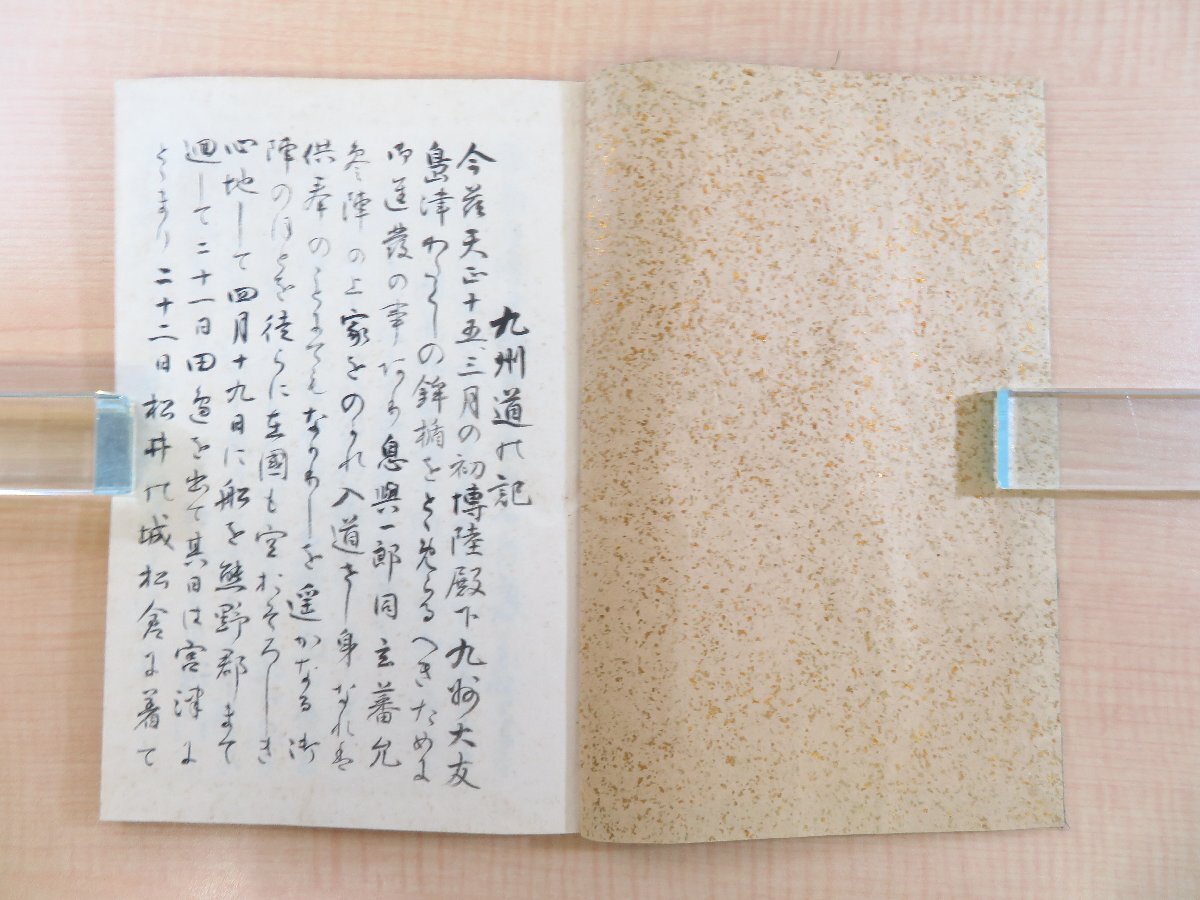 九州道の記
今茲天正十五、三月の初博陸殿下九州大友
島津わたくしの鉾楯をとゝめらるへきために
御進發の事ありて息與一郎同玄蕃允
參陣の上家をのかれ入道せし身なれは
供奉のことまてもなかりしを遥かなる御
陣のほとを徒らに在國も空おそろしき
心地して四月十九日に船を熊野郡まて
廻して二十一日田邊を出て其日は宮津に
とまり二十二日松井の城松倉に着て